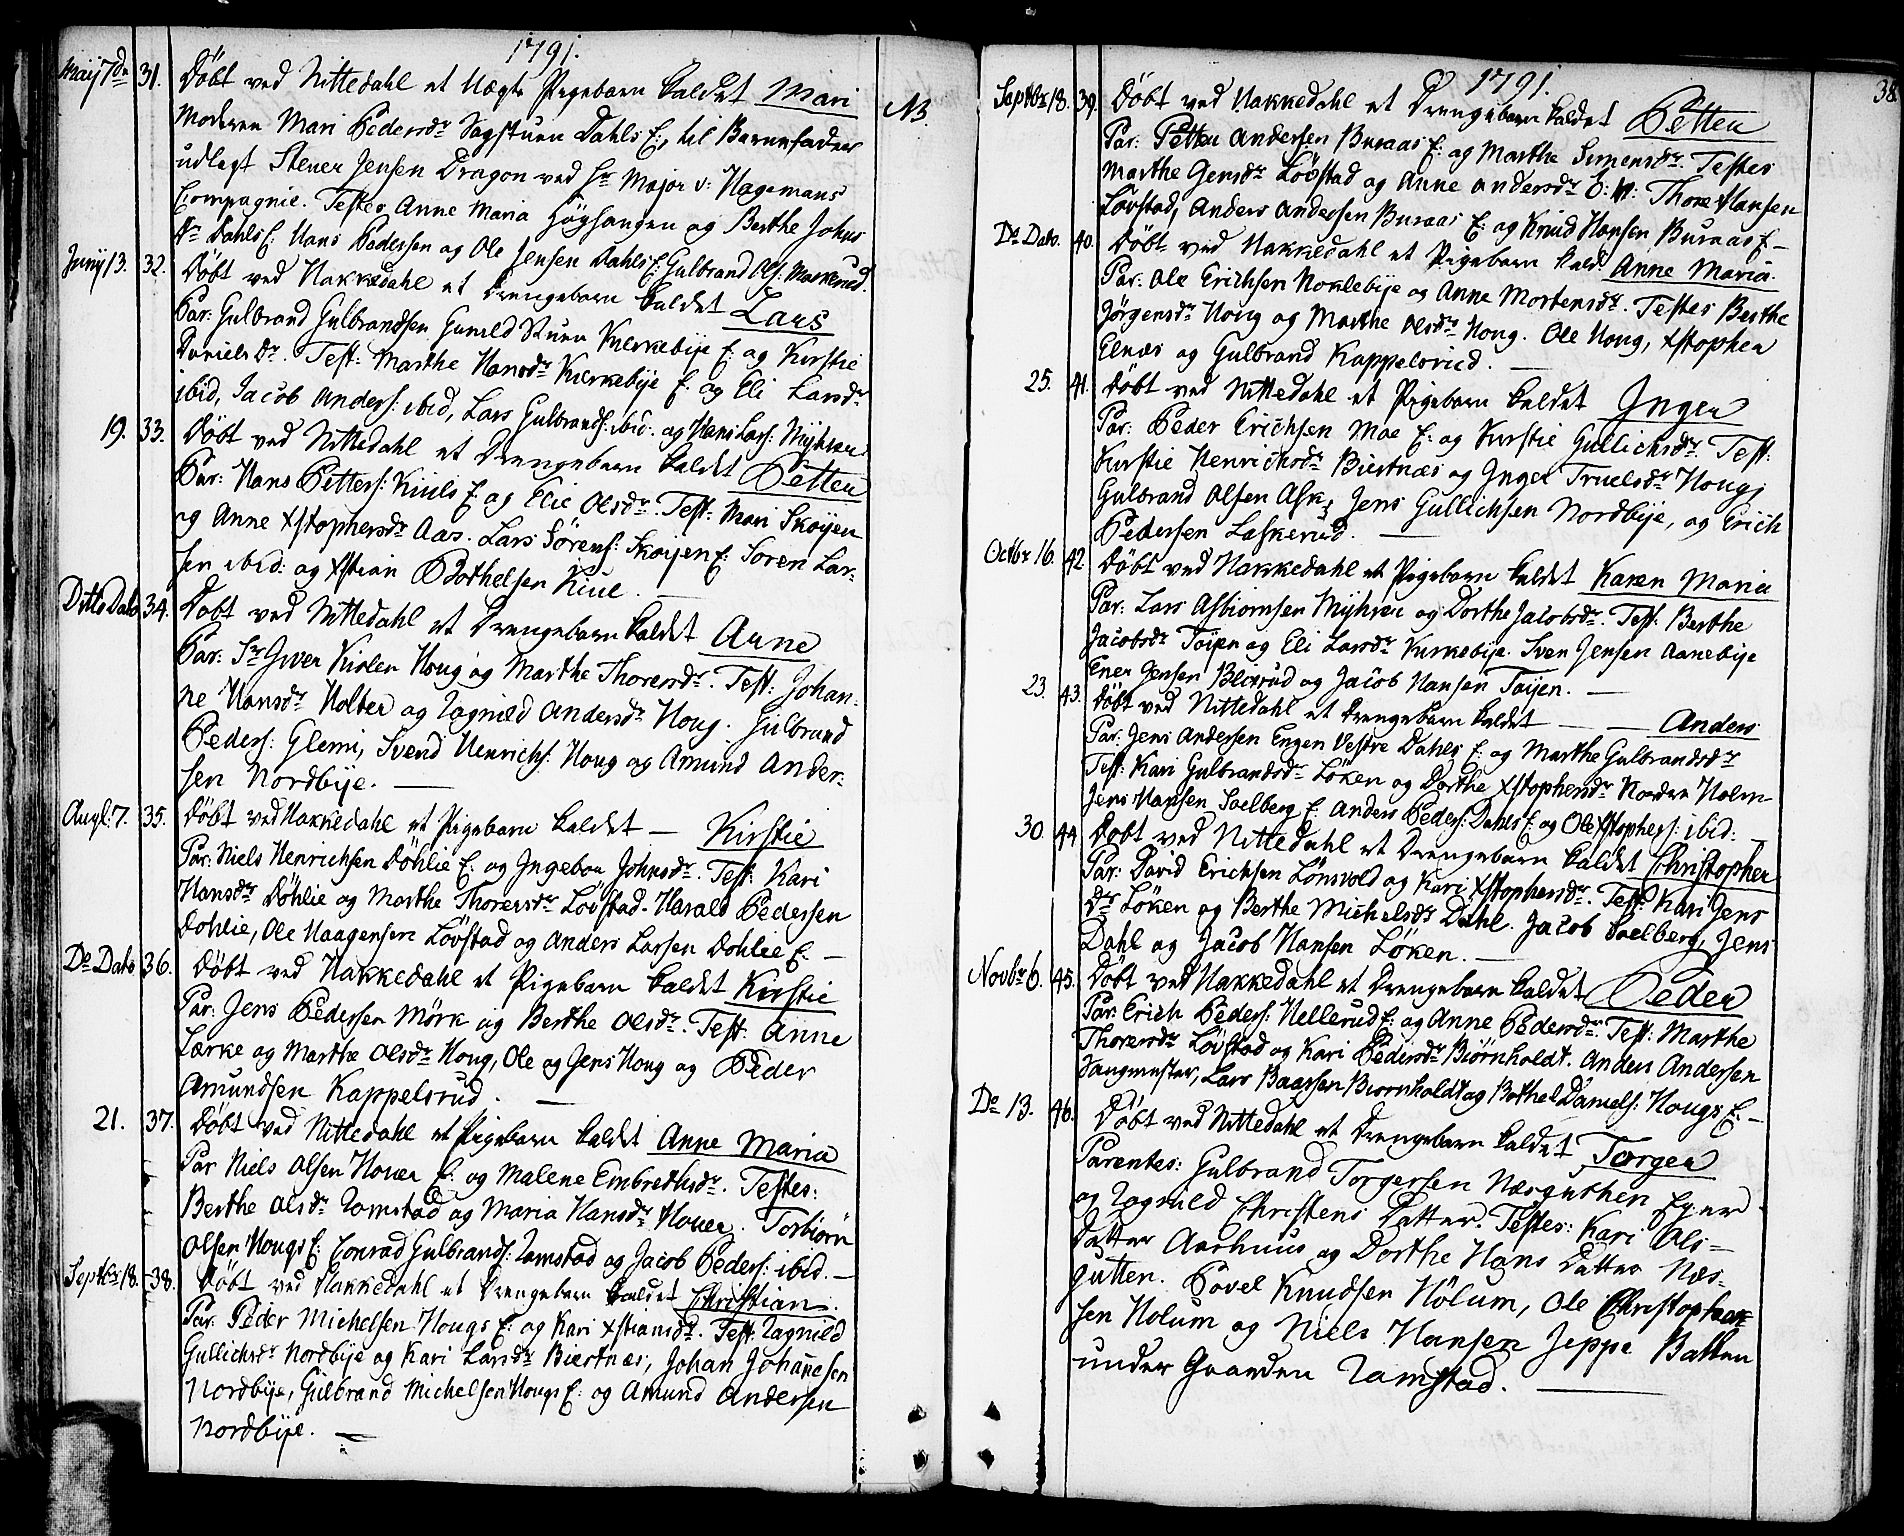 1791.
Maij 7de 31. Döbt ved Nittedahl et Uægte Pigebarn kaldet Mari
NB.
Moderen Mari Pedersdr Sagstuen Dahls E:, til Barnefader
udlagt Stener Jensen Dragon ved Hr Major v: Hagemans
Compagnie. Testes Anne Maria Höghaugen og Berthe Johns
Dr Dahls E: Hans Pedersen og Ole Jensen Dahls E: Gulbrand Ols: Markerud.
Junij 13. 32. Döbt ved Hakkedahl et Drengebarn kaldet Lars
Par: Gulbrand Gulbrandsen Gunild Stuen Kierkebije E: og Kirstie
Daniels Dr. Test: Marthe Hansdr Kierkebije E: og Eli Larsdr
ibid, Jacob Anders: ibid, Lars Gulbrands: ibid: og Hans Lars: Mijhren
19. 33. Döbt ved Nittedahl et Drengebarn kaldet Petter
Par: Hans Petters: Kiuls E: og Elie Olsdr. Test: Mari Skøyen
og Anne Xstophersdr Aas. Lars Sörens: Skoijen E: Sören Lar-
sen ibid: og Xstian Bothelsen Kiul.
Ditto Dato 34. Döbt ved Nittedahl et Drengebarn kaldet Arne
Par: Sr Iver Kiölen Houg og Marthe Thorersdr. Test: Johan-
ne Hansdr Holter og Ragnild Andersdr Houg. Gulbrand
Peders: Glemi, Svend Henrichs: Houg og Amund Ander-
sen Nordbije.
Augl: 7. 35. Döbt ved Hakkedahl et Pigebarn kaldet — Kirstie
Par: Niels Henrichsen Döhlie E: og Ingebor Johnsdr. Test: Kari
Hansdr Döhlie og Marthe Thorersdr Lövstad. Harald Pedersen
Döhlie, Ole Haagensen Lövstad og Anders Larsen Döhlie E: —
Do Dato 36. Döbt ved Hakkedahl et Pigebarn kaldet Kirstie
Par: Jens Pedersen Mörk og Berthe Olsdr. Test: Anne
Lærke og Marthe Olsdr Houg, Ole og Jens Houg og Peder
Amundsen Kappelsrud.
21. 37. Döbt ved Nittedahl et Pigebarn kaldet Anne Maria
Par Niels Olsen Houer E: og Malene Embrethsdr. Testes:
Berthe Olsdr Ramstad og Maria Hansdr Houer. Torbiörn
Olsen Hougs E: Conrad Gulbrands: Ramstad og Jacob Peders: ibid. —
Septbr 18. 38. Döbt ved Hakkedahl et Drengebarn kaldet Christian.
Par: Peder Michelsen Hougs E: og Kari Xstiansdr. Test: Ragnild
Gullichsdr Nordbije og Kari Larsdr Biertnæs, Johan Johanesen
Nordbije, Gulbrand Michelsen Hougs E: og Amund Andersen
Nordbije.
38
1791.
Septbr 18. 39. Döbt ved Hakkedahl et Drengebarn kaldet Petter
Par: Petter Andersen Buraas E: og Marthe Simensdr. Testes
Marthe Gensdr Lövstad og Anne Andersdr Thore Hansen
Lövstad, Anders Andersen Buraas E: og Knud Hansen Buraas E. —
Do Dato. 40. Döbt ved Hakkedahl et Pigebarn kald: Anne Maria.
Par: Ole Erichsen Noklebije og Anne Mortensdr. Testes Berthe
Jörgensdr Houg og Marthe Olsdr Houg. Ole Houg, Xstopher
Elnæs og Gulbrand Kappelsrud.
25. 41. Döbt ved Nittedahl et Pigebarn kaldet Inger
Par: Peder Erichsen Moe E: og Kirstie Gullichsdr. Test:
Kirstie Henrichsdr Biertnæs og Inger Truelsdr Houg;
Gulbrand Olsen Ask, Jens Gullichsen Nordbije, og Erich
Pedersen Laskerud.
Octbr 16. 42. Döbt ved Hakkedahl et Pigebarn kaldet Karen Maria
Par: Lars Asbiörnsen Mijhren og Dorthe Jacobsdr. Test: Berthe
Jacobsdr Töijen og Eli Larsdr Kirkebije. Sven Jensen Aanebije
Ener Jensen Blexrud og Jacob Hansen Töijen. —
23. 43. Döbt ved Nittedahl et Drengebarn kaldet — Anders
Par: Jens Andersen Engen Vestre Dahls E: og Marthe Gulbrandsdr
Test: Kari Gulbrandsdr Löken og Dorthe Xstophersdr Nordre Holm
Jens Hansen Soelberg E: Anders Peders: Dahls E: og Ole Xstophers: ibid: —
30. 44 Döbt ved Nittedahl et Drengebarn kaldet Christopher
Par: David Erichsen Lönsvold og Kari Xstophersdr. Test: Kari Jens
Dr Löken og Berthe Michelsdr Dahl. Jacob Soelberg, Jens
Dahl og Jacob Hansen Löken. —
Novbr 6. 45. Döbt ved Hakkedahl et Drengebarn kaldet Peder
Par: Erich Peders: Hellerud E: og Anne Pedersdr. Test: Marthe
Thorersdr Lövstad og Kari Pedersdr Biörnholdt. Anders Andersen
Sangmester, Lars Baarsen Biörnholdt og Bothel Daniels: Hougs E: —
Do 13. 46. Döbt ved Nittedahl et Drengebarn kaldet Torger
Parentes: Gulbrand Torgersen Næsgutten Ejer
og Ragnild Christens Datter. Testes: Kari Ols-
Datter Aarhuus og Dorthe Hans Datter Næs-
gutten. Povel Knudsen Hölum, Ole Christopher-
sen Holum og Niels Hansen Jeppe Batten
under Gaarden Ramstad. —